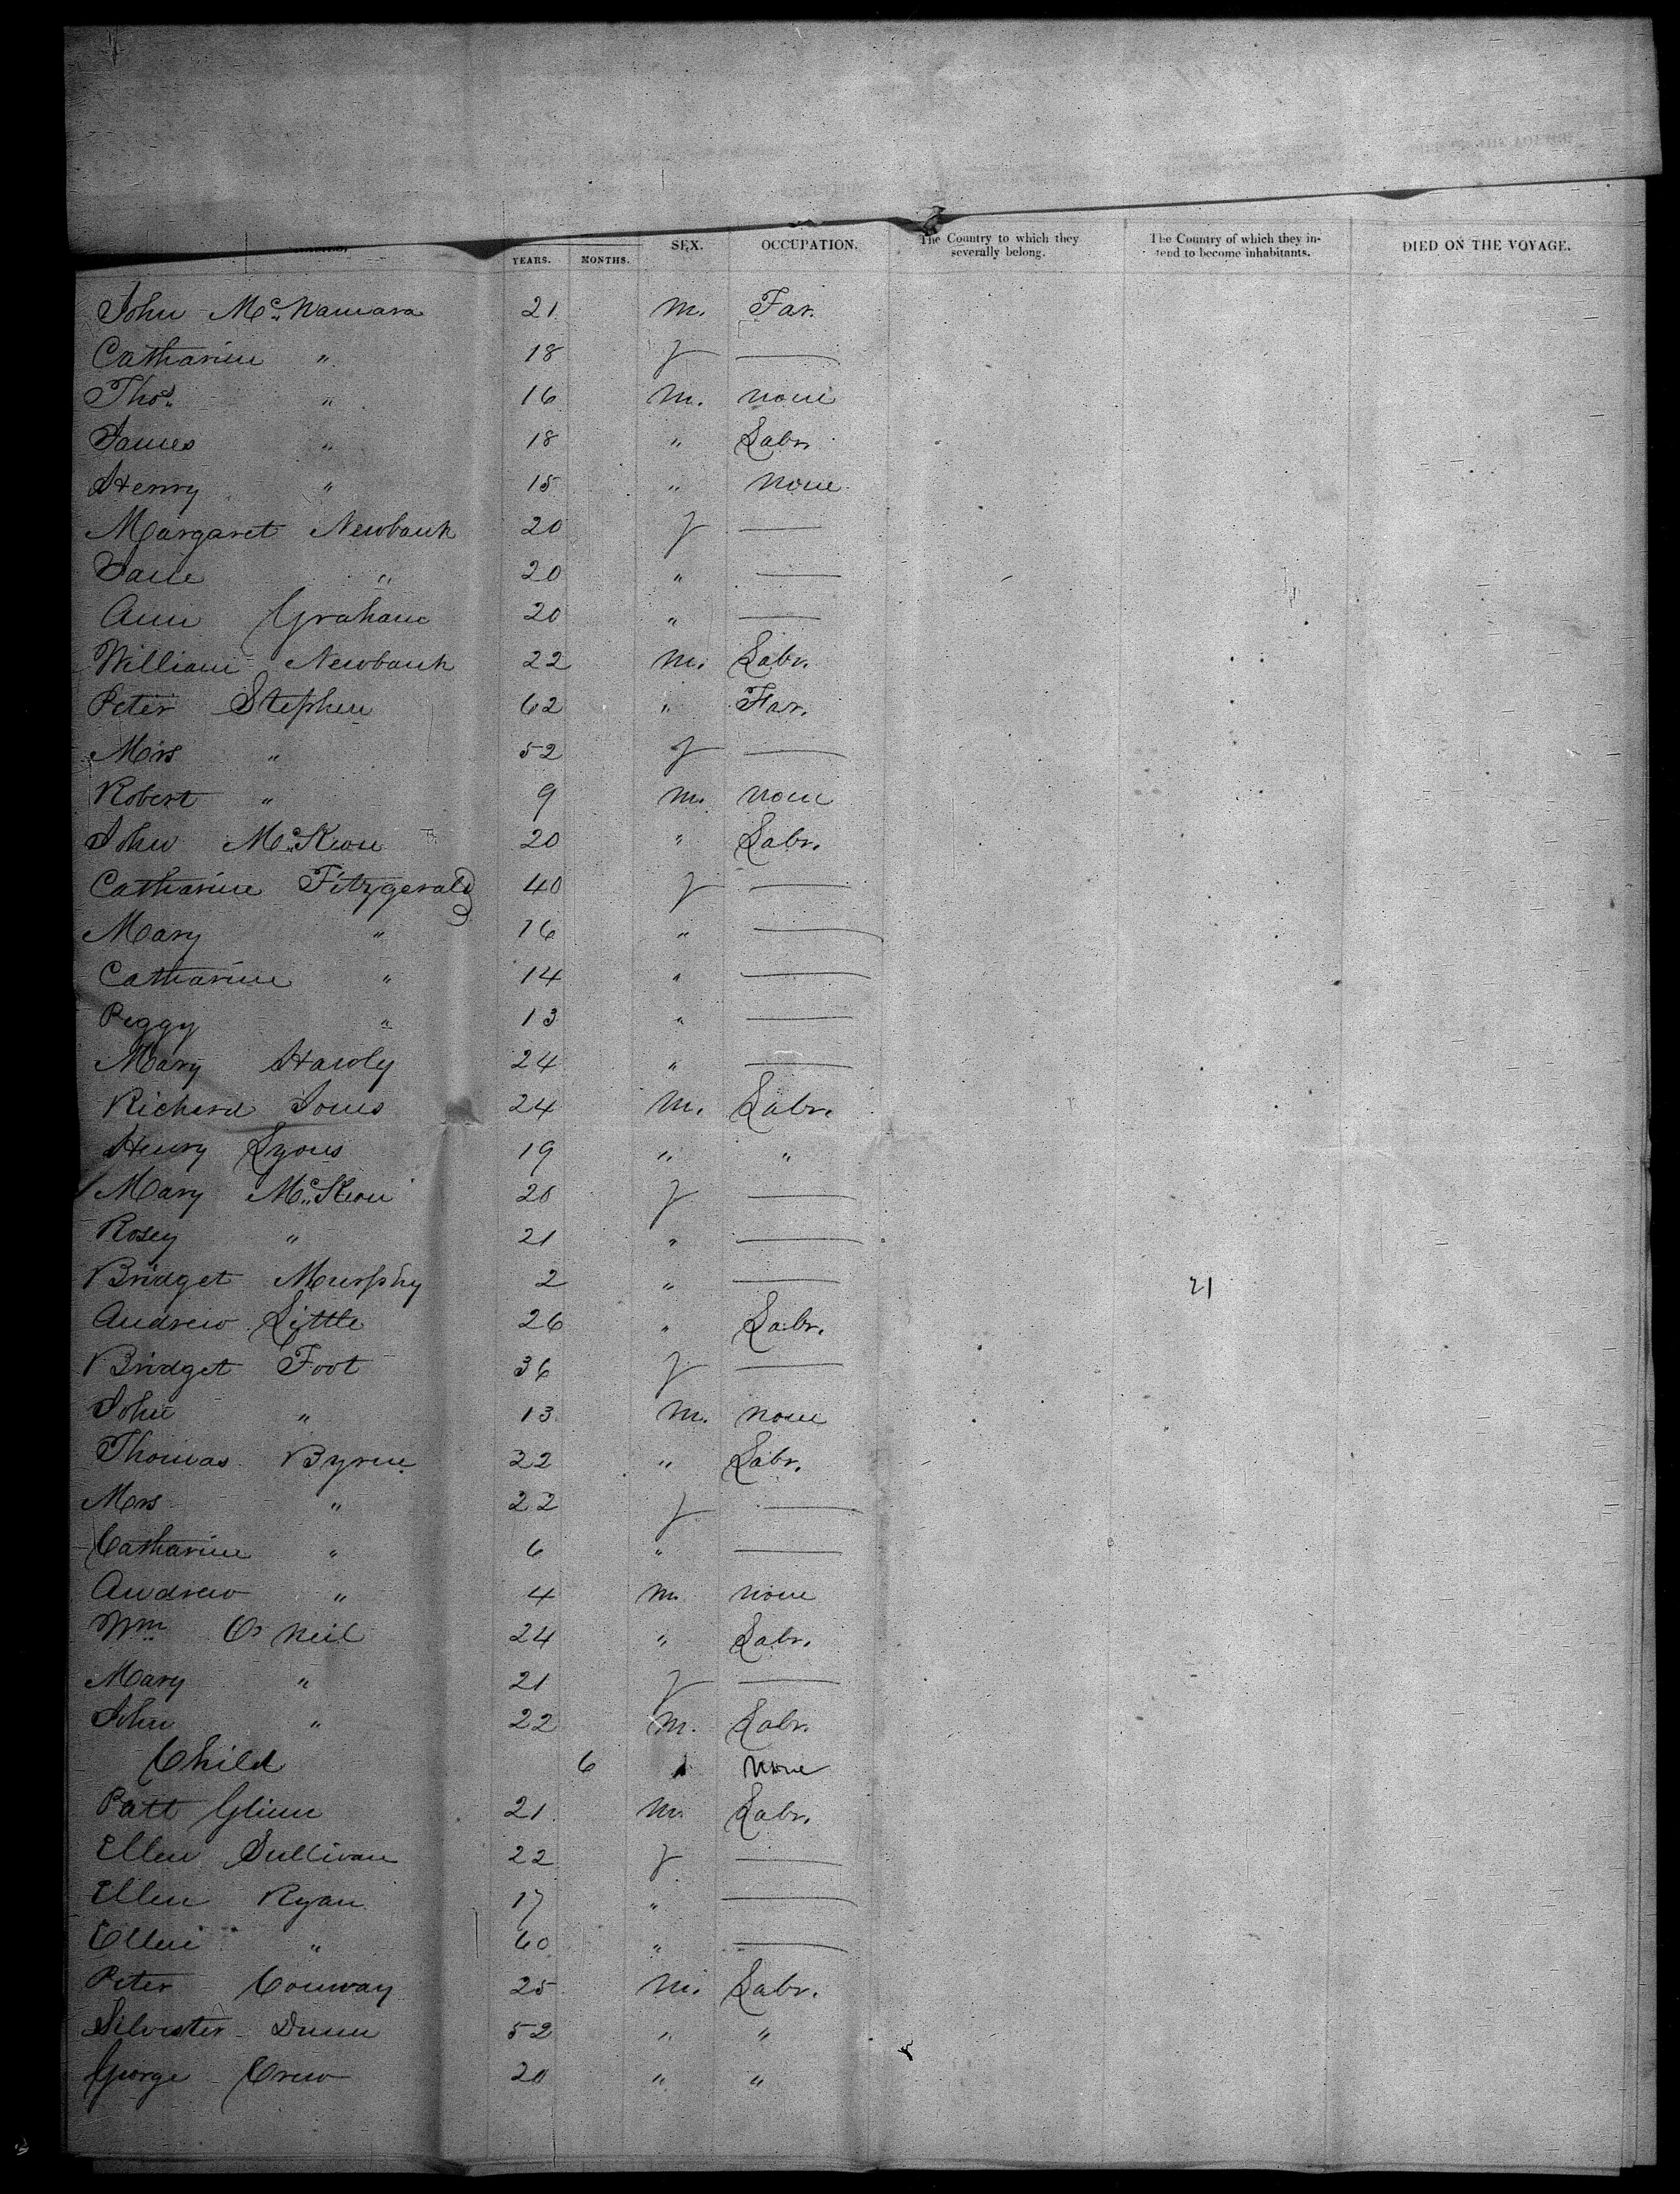 YEARS. MONTHS. SEX. OCCUPATION. The Country to which they severally belong. The Country of which they intend to become inhabitants. DIED ON THE VOYAGE.
John McNamara 21 m. Far.
Catharine " 18 f —
Thos. " 16 m. none
James " 18 " Labr.
Henry " 15 " none
Margaret Newbank 20 f —
Jane " 20 " —
Ann Graham 20 " —
William Newbank 22 m. Labr.
Peter Stephen 62 " Far.
Mrs " 52 f —
Robert " 9 m. none
John McKeon 20 " Labr.
Catharine Fitzgerald 40 f —
Mary " 16 " —
Catharine " 14 " —
Peggy " 13 " —
Mary Hawly 24 " —
Richard Jones 24 m. Labr.
Henry Lyons 19 " "
Mary McKeon 20 f —
Rosey " 21 " —
Bridget Murphy 2 " — 21
Andrew Little 26 " Labr.
Bridget Foot 36 f —
John " 13 m. none
Thomas Byrne 22 " Labr.
Mrs " 22 f —
Catharine " 6 " —
Andrew " 4 m. none
Wm O'Neil 24 " Labr.
Mary " 21 f —
John " 22 m. Labr.
Child 6 none
Patt Glinn 21 m. Labr.
Ellen Sullivan 22 f —
Ellen Ryan 17 " —
Ellen " 60 " —
Peter Conway 25 m. Labr.
Silvester Dunn 52 " "
George Crew 20 " "